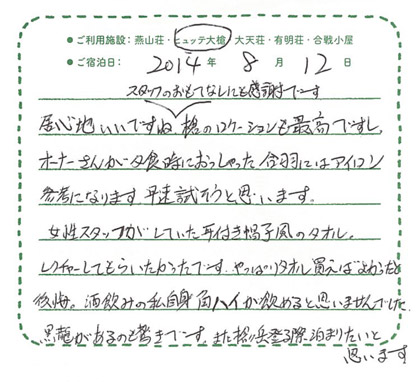 ●ご利用施設：燕山荘・ヒュッテ大槍・大天荘・有明荘・合戦小屋
●ご宿泊日： 2014 年 8 月 12 日
スタッフのおもてなしにも感謝です
居心地いいですね 槍のロケーションも最高ですし、
オーナーさんが夕食時におっしゃった合羽にはアイロン
参考になります。早速試そうと思います。
女性スタッフがしていた耳付き帽子風のタオル。
レクチャーしてもらいたかったです。やっぱりタオル買えばよかったと
後悔。酒飲みの私自身角ハイが飲めると思いませんでした。
黒龍があるのも驚きです。また槍ヶ岳登る際泊まりたいと
思います